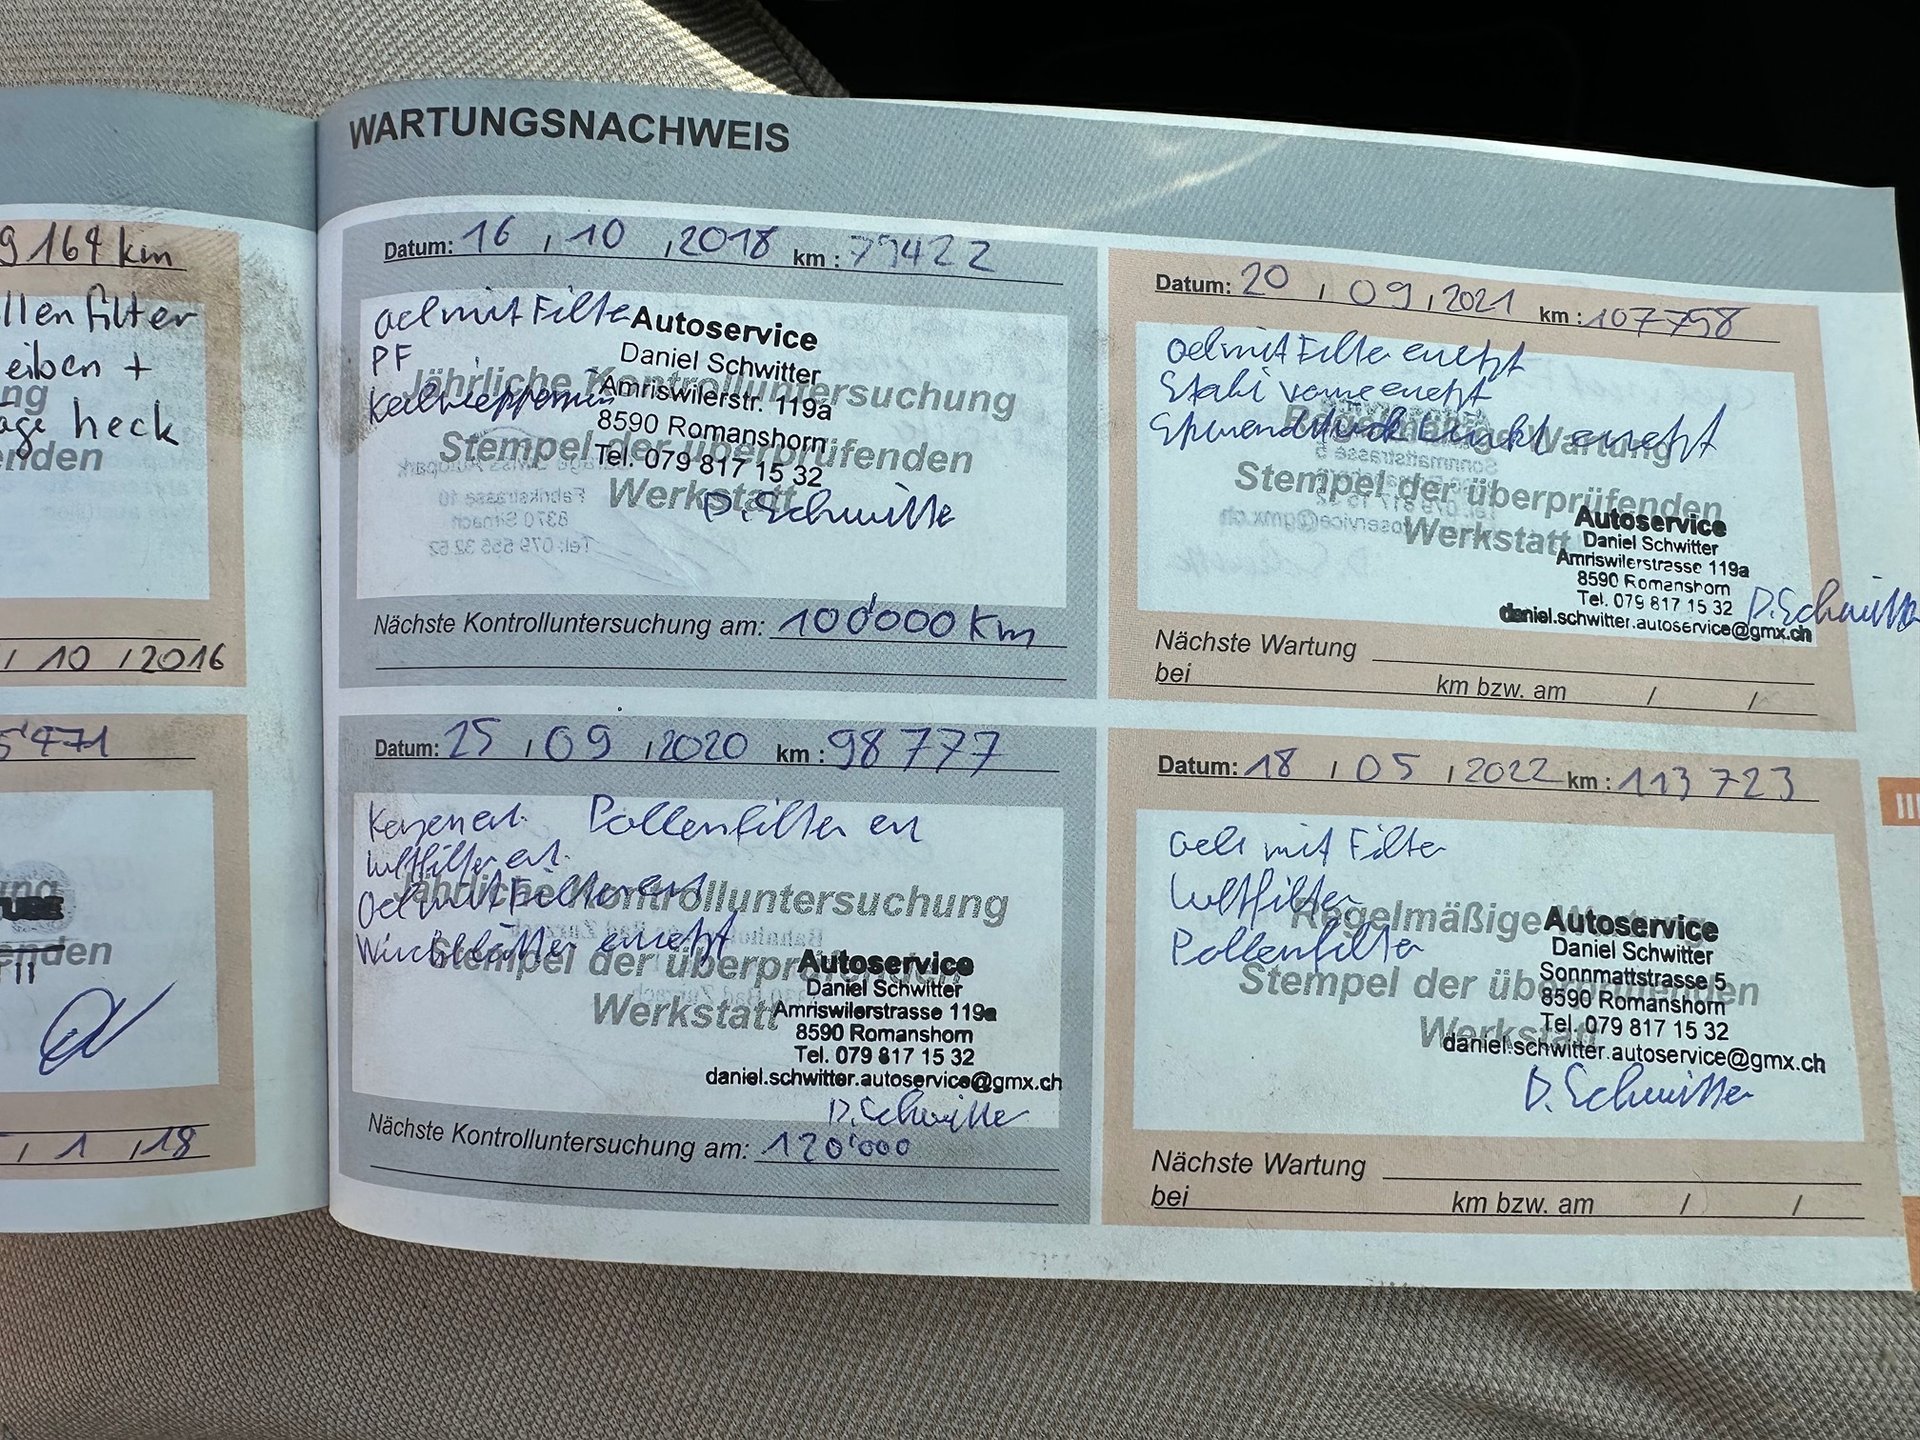 9164 km
llen filter
eiben +
age heck
ng
enden
/ 10 / 2016
5'471
ung
TUBE
enden
/ 1 / 18
WARTUNGSNACHWEIS
Datum: 16 / 10 / 2018 km : 79422
oel mit Filter
PF
Autoservice
Daniel Schwitter
Amriswilerstr. 119a
8590 Romanshorn
Tel. 079 817 15 32
Jährliche Kontrolluntersuchung
Stempel der überprüfenden
Werkstatt
D. Schwitter
Nächste Kontrolluntersuchung am: 100'000 Km
Datum: 25 / 09 / 2020 km : 98777
Kerzen ert. Pollenfilter ert
Luftfilter ert.
Oel mit Filter ert
Wischblätter ersetzt
Jährliche Kontrolluntersuchung
Stempel der überprüfenden
Werkstatt
Autoservice
Daniel Schwitter
Amriswilerstrasse 119a
8590 Romanshorn
Tel. 079 817 15 32
daniel.schwitter.autoservice@gmx.ch
D. Schwitter
Nächste Kontrolluntersuchung am: 120'000
Datum: 20 / 09 / 2021 km : 107758
oel mit Filter ersetzt
Stabi vorne ersetzt
ersetzt
Regelmäßige Wartung
Stempel der überprüfenden
Werkstatt
Autoservice
Daniel Schwitter
Amriswilerstrasse 119a
8590 Romanshorn
Tel. 079 817 15 32
daniel.schwitter.autoservice@gmx.ch
D. Schwitter
Nächste Wartung
bei km bzw. am / /
Datum: 18 / 05 / 2022 km : 113723
oel mit Filter
Luftfilter
Pollenfilter
Regelmäßige Wartung
Stempel der überprüfenden
Werkstatt
Autoservice
Daniel Schwitter
Sonnmattstrasse 5
8590 Romanshorn
Tel. 079 817 15 32
daniel.schwitter.autoservice@gmx.ch
D. Schwitter
Nächste Wartung
bei km bzw. am / /